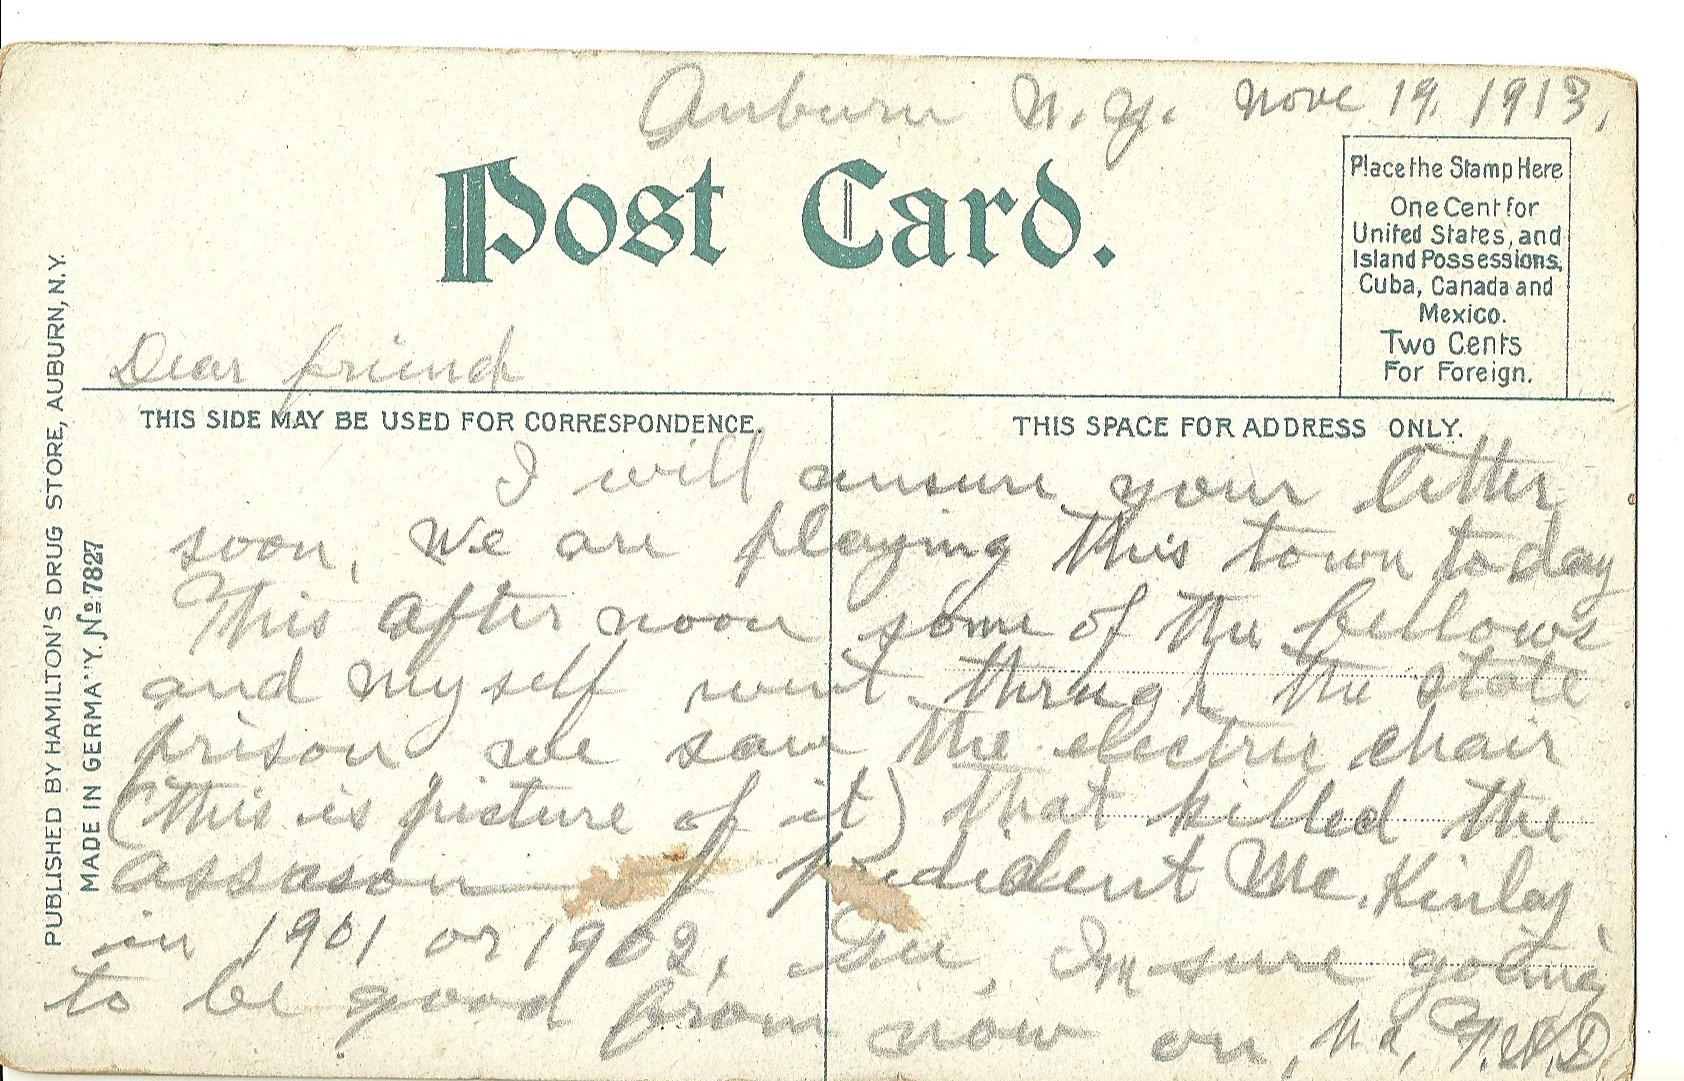 Auburn N.Y. Nove 19. 1913,
Post Card.
Place the Stamp Here
One Cent for
United States, and
Island Possessions,
Cuba, Canada and
Mexico.
Two Cents
For Foreign.
Dear friend
THIS SIDE MAY BE USED FOR CORRESPONDENCE.
THIS SPACE FOR ADDRESS ONLY.
I will ansure your letter
soon, We are playing this town today
This after noon some of the fellows
and myself went through the state
prison we saw the electric chair
(this is picture of it) that killed the
assason of president Mc.Kinlay
in 1901 or 1902, Gee, Im sure going
to be good from now on,
PUBLISHED BY HAMILTON'S DRUG STORE, AUBURN, N.Y.
MADE IN GERMA''Y. No 7827